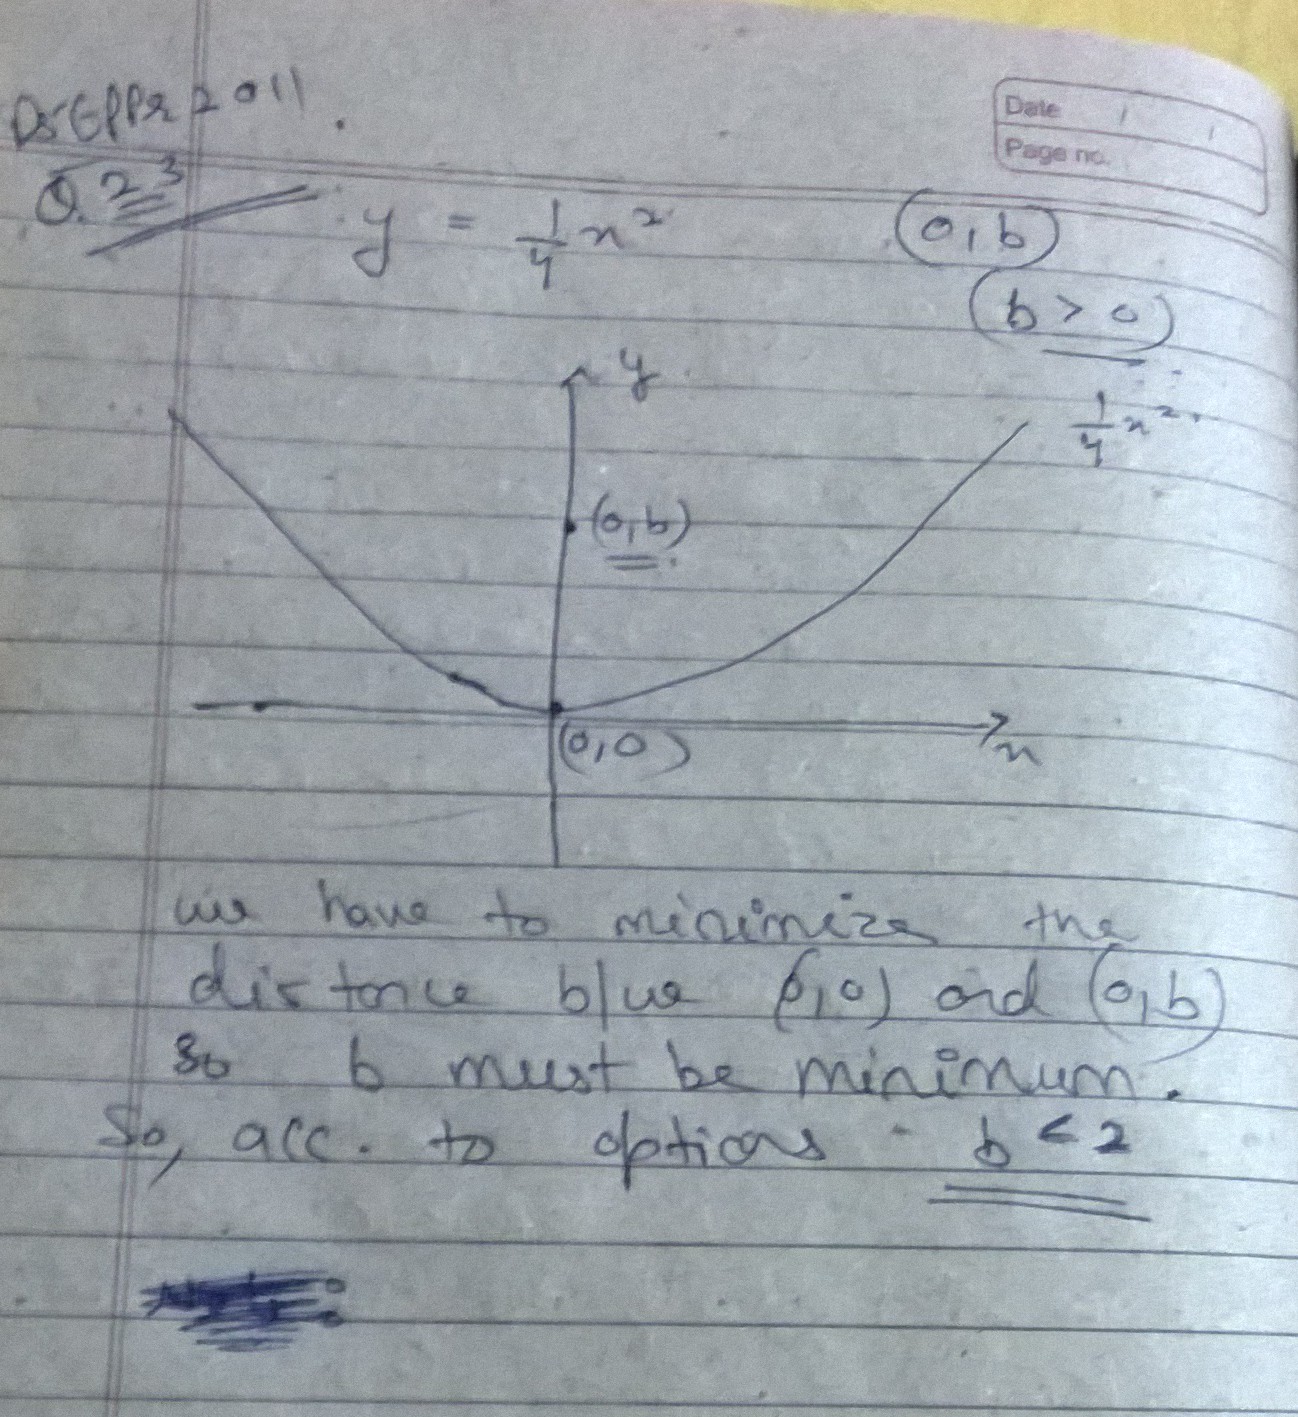 DSEPPr 2011.
Date
Page no.
Q.23
y = 1/4 x²
(0,b)
(b > 0)
y
1/4 x²
(0,b)
(0,0)
x
we have to minimize the
distance b/w (0,0) and (0,b)
so b must be minimum.
So, acc. to options - b < 2